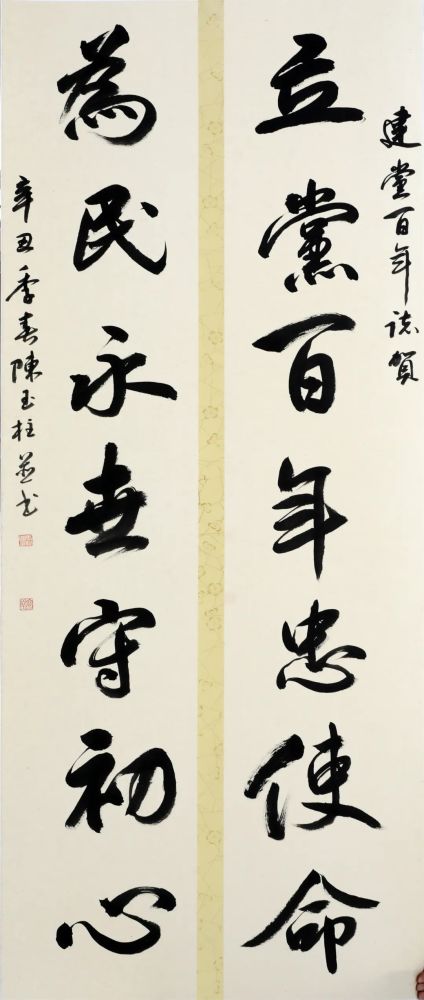 建黨百年誌賀
立黨百年忠使命
為民永世守初心
辛丑季春陳玉柱並書